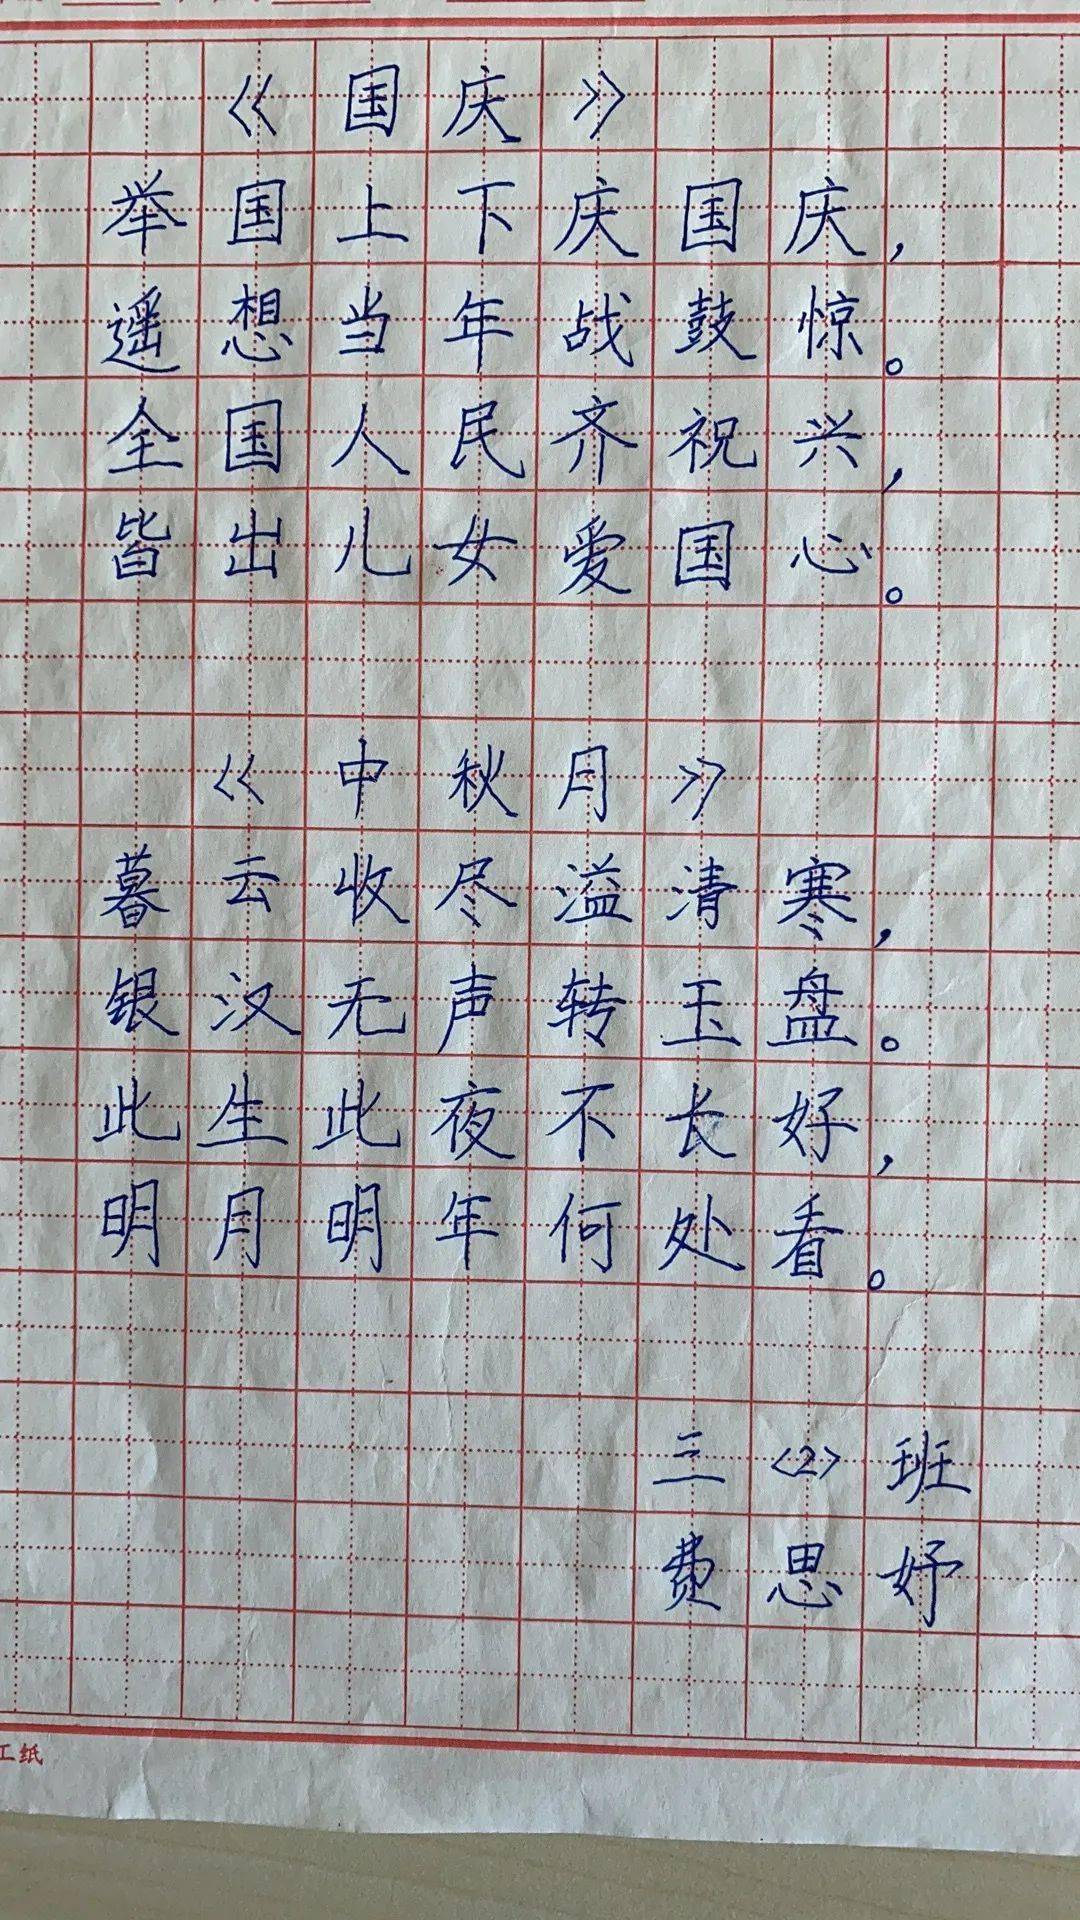 《国庆》
举国上下庆国庆，
遥想当年战鼓惊。
全国人民齐祝兴，
皆出儿女爱国心。
《中秋月》
暮云收尽溢清寒，
银汉无声转玉盘。
此生此夜不长好，
明月明年何处看。
三<2>班
费思妤
工纸